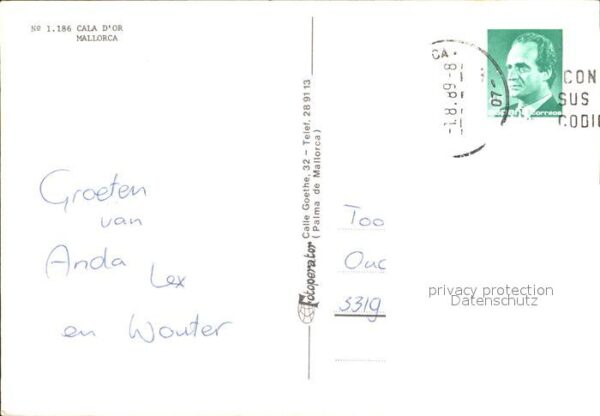 Nº 1.186 CALA D'OR
MALLORCA
Groeten
van
Anda
Lex
en Wouter
Fotoperator Calle Goethe, 32 - Telef. 28 91 13
(Palma de Mallorca)
CA
-1.8.89-8
07-
CON
SUS
CODI
correos
Too
Ouc
5319
privacy protection
Datenschutz